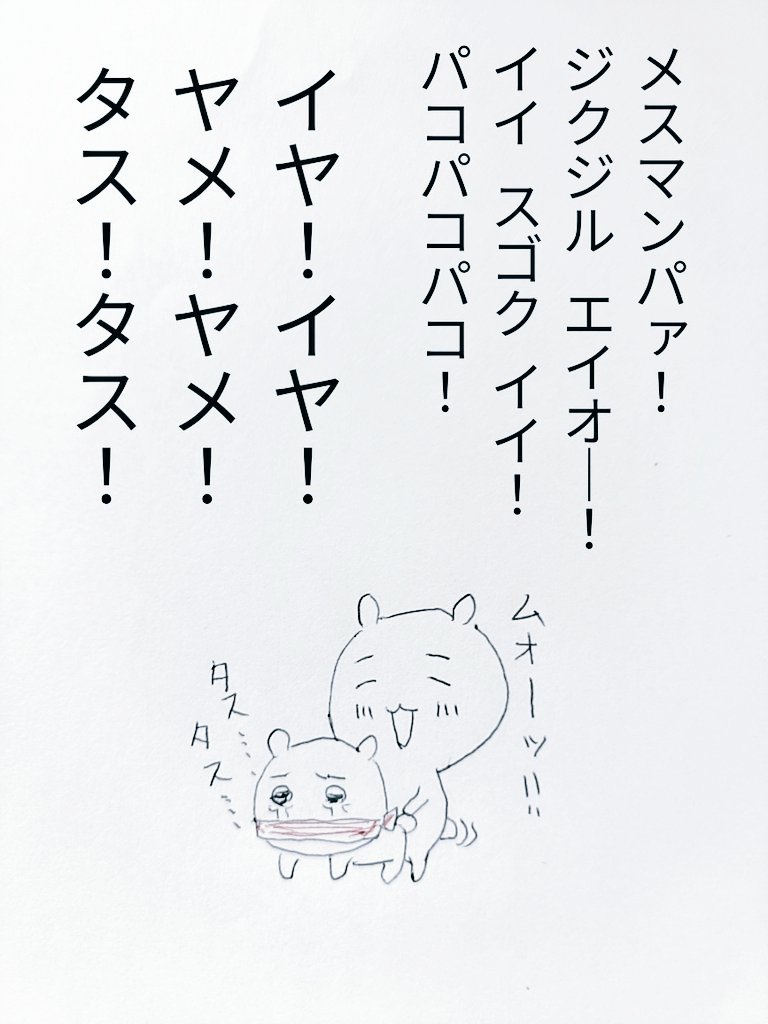 メスマンパァ！
ジクジル エイオー！
イイ スゴク イイ！
パコパコパコ！
イヤ！イヤ！
ヤメ！ヤメ！
タス！タス！
ムオーッ!!
タス…
タス…